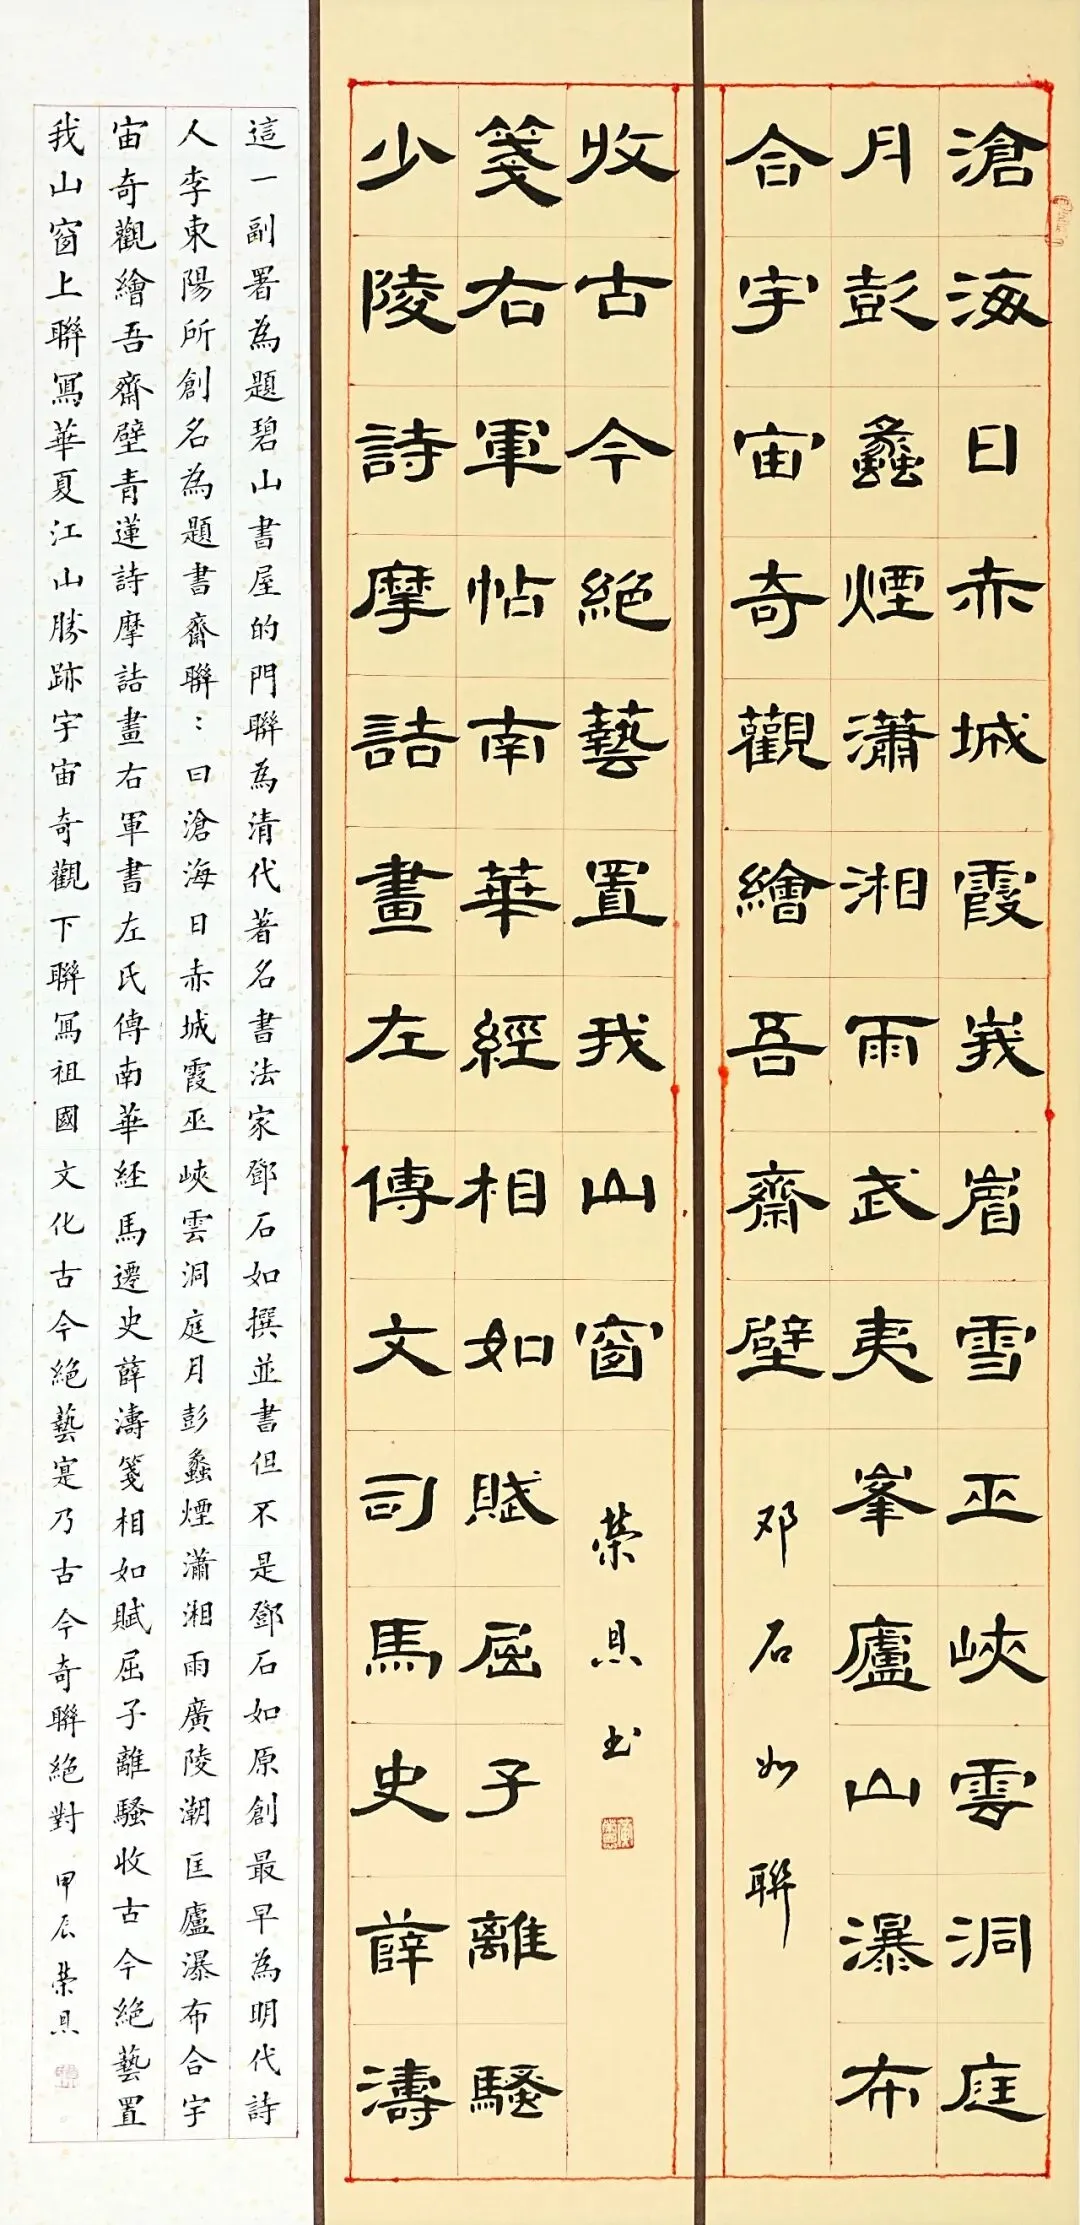 滄海日赤城霞峩眉雪巫峽雲洞庭
月彭蠡煙瀟湘雨武夷峯廬山瀑布
合宇宙奇觀繪吾齋壁
邓石如聯
少陵詩摩詰畫左傳文司馬史薛濤
箋右軍帖南華經相如賦屈子離騷
收古今絕藝置我山窗
榮恩书
這一副署為題碧山書屋的門聯為清代著名書法家鄧石如撰並書但不是鄧石如原創最早為明代詩
人李東陽所創名為題書齋聯：曰滄海日赤城霞巫峽雲洞庭月彭蠡煙瀟湘雨廣陵潮匡廬瀑布合宇
宙奇觀繪吾齋壁青蓮詩摩詰畫右軍書左氏傳南華経馬遷史薛濤箋相如賦屈子離騷收古今絕藝置
我山窗上聯寫華夏江山勝跡宇宙奇觀下聯寫祖國文化古今絕藝寔乃古今奇聯絕對 甲辰榮恩